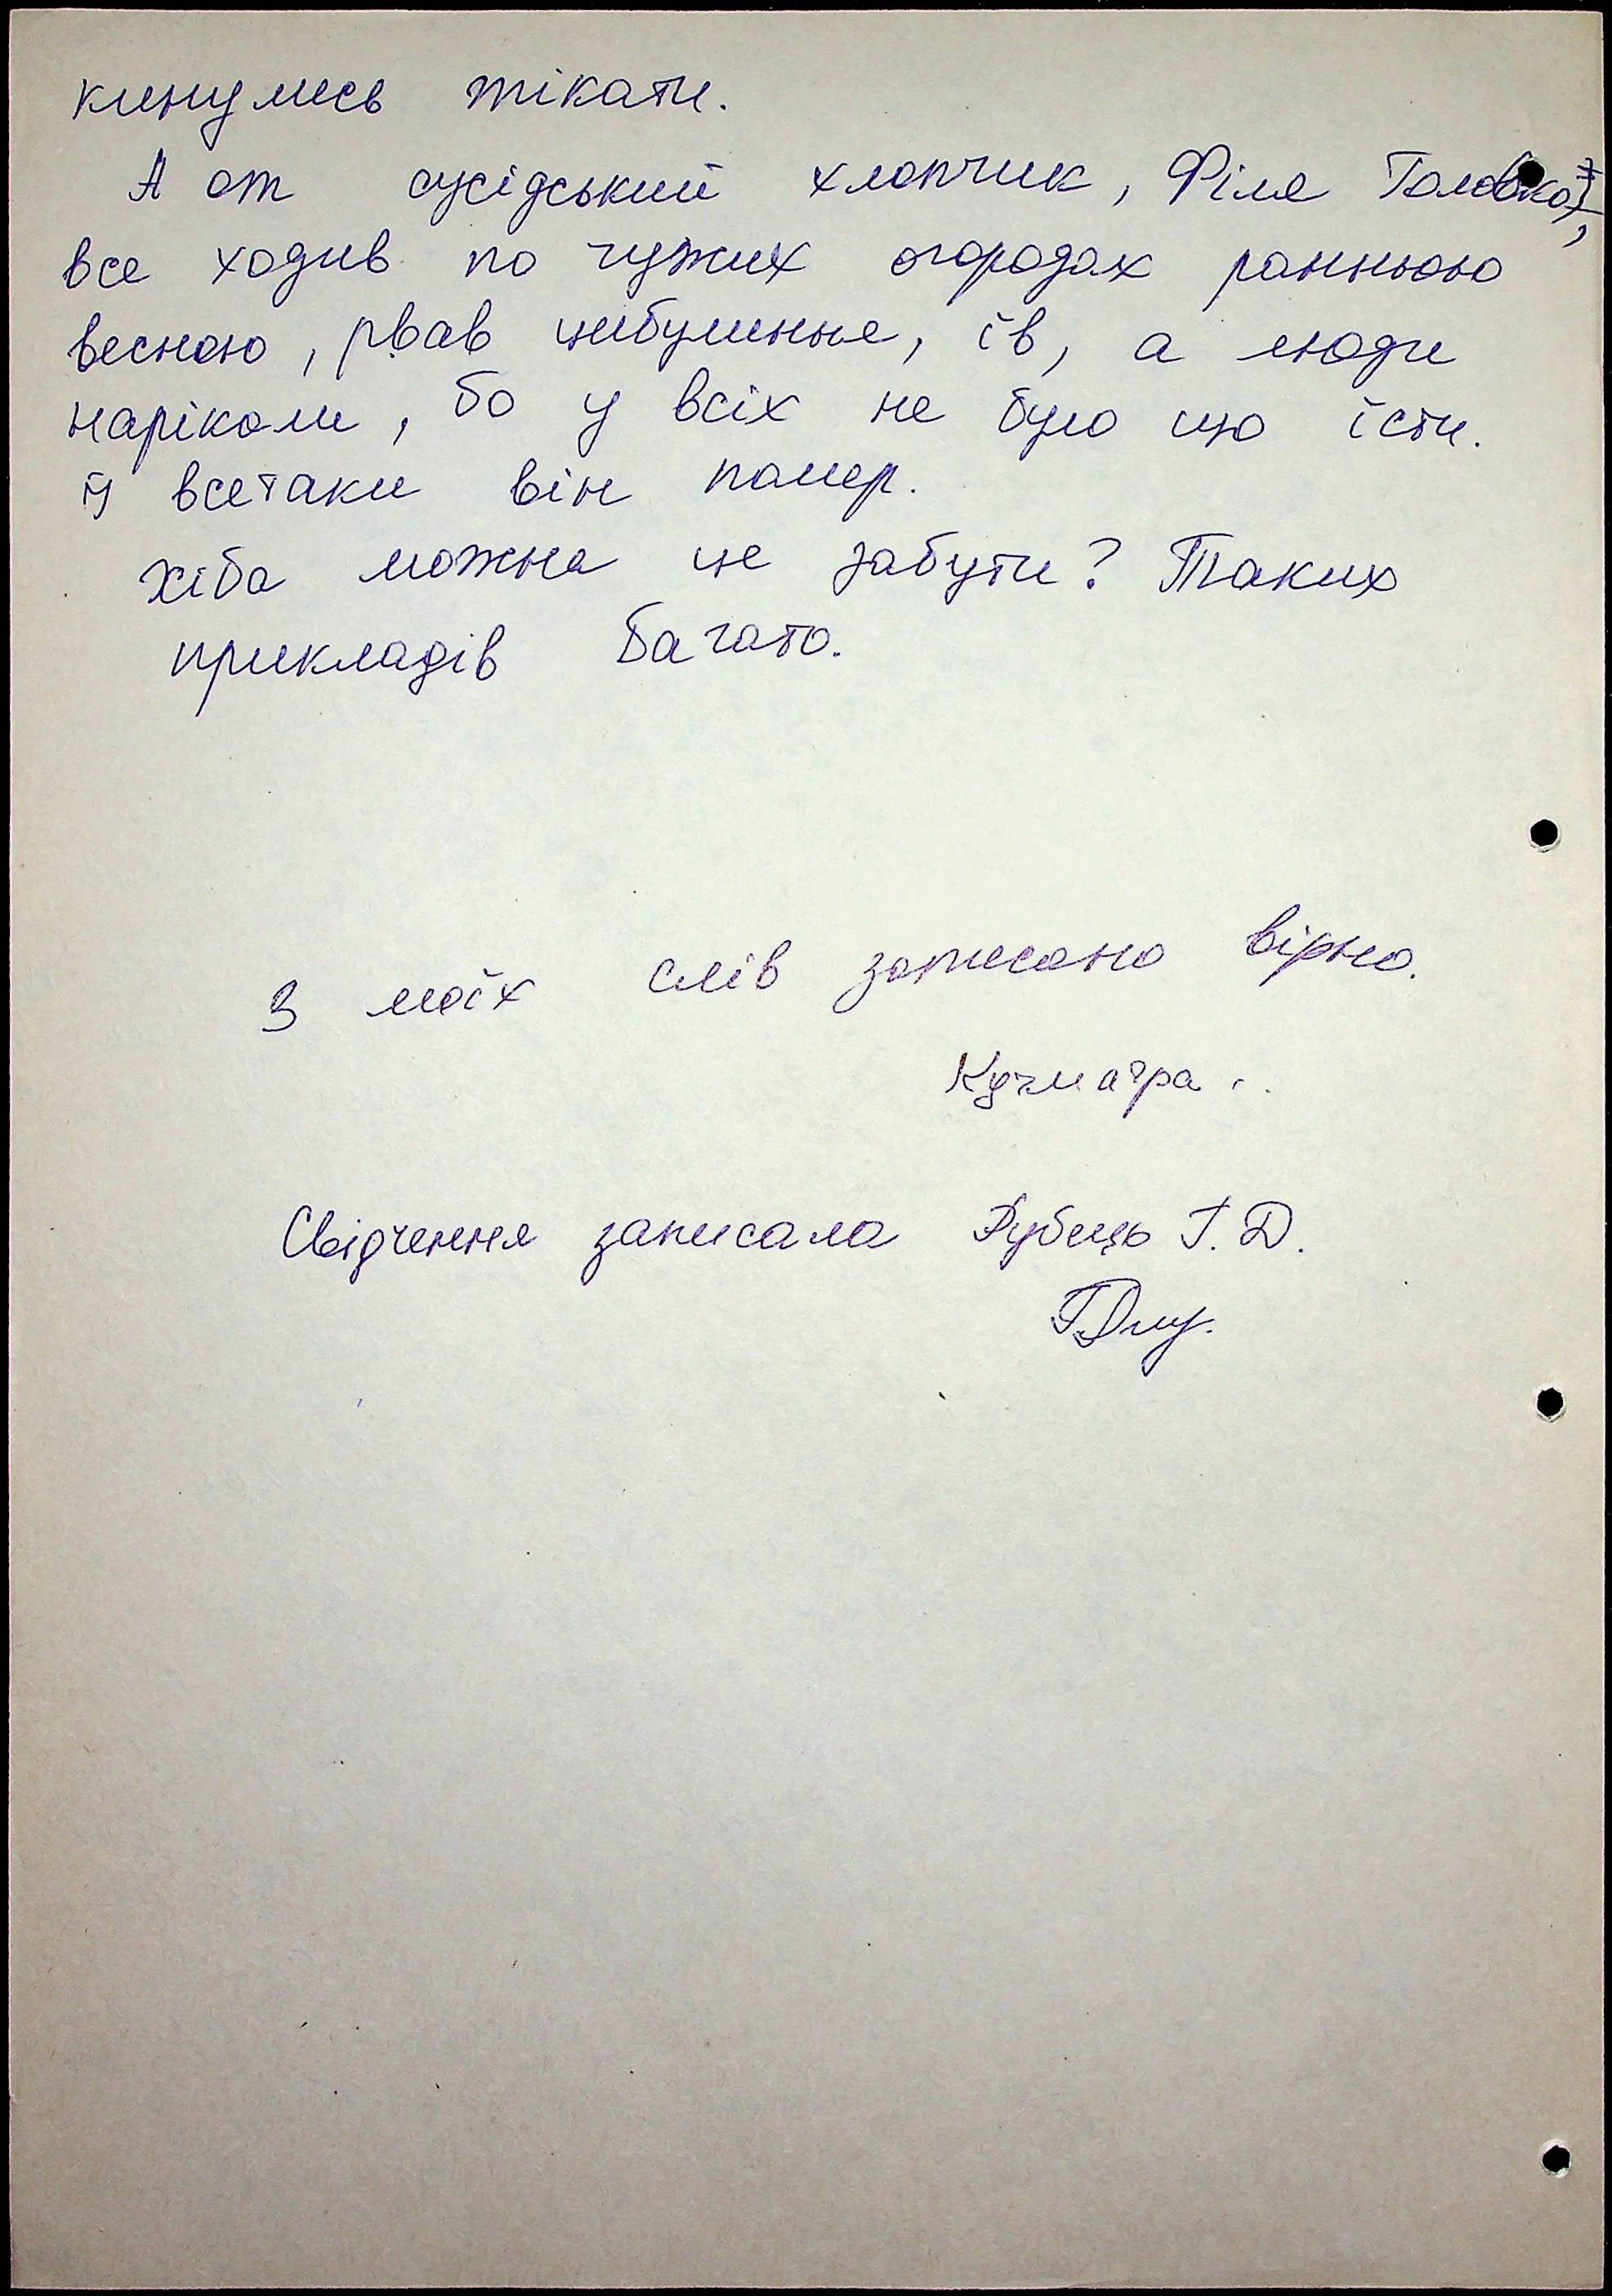 кинулись тікати.
А от сусідський хлопчик, Філя Головко,
все ходив по чужих огородах ранньою
весною, рвав цибулиння, їв, а люди
нарікали, бо у всіх не було що їсти.
Й всетаки він помер.
Хіба можна це забути? Таких
прикладів багато.
З моїх слів записано вірно.
Свідчення записала Рубець Г. Д.